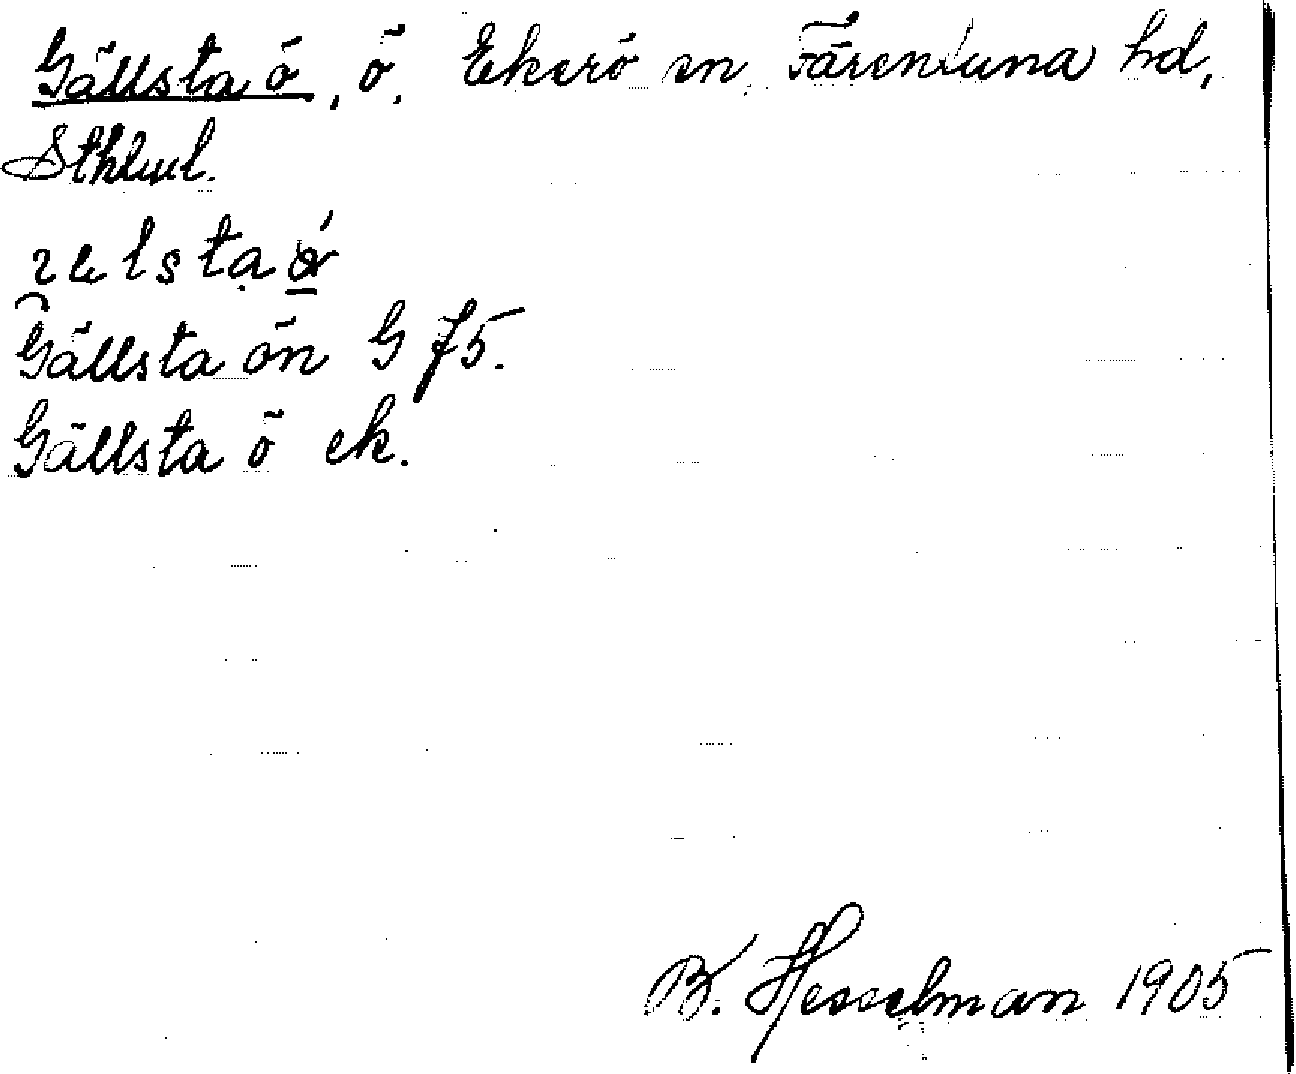 Gällsta ö, ö, Ekerö sn, Färentuna hd,
Sthlml.
Gällsta ön G f5.
Gällsta ö ek.
B. Hesselman 1905